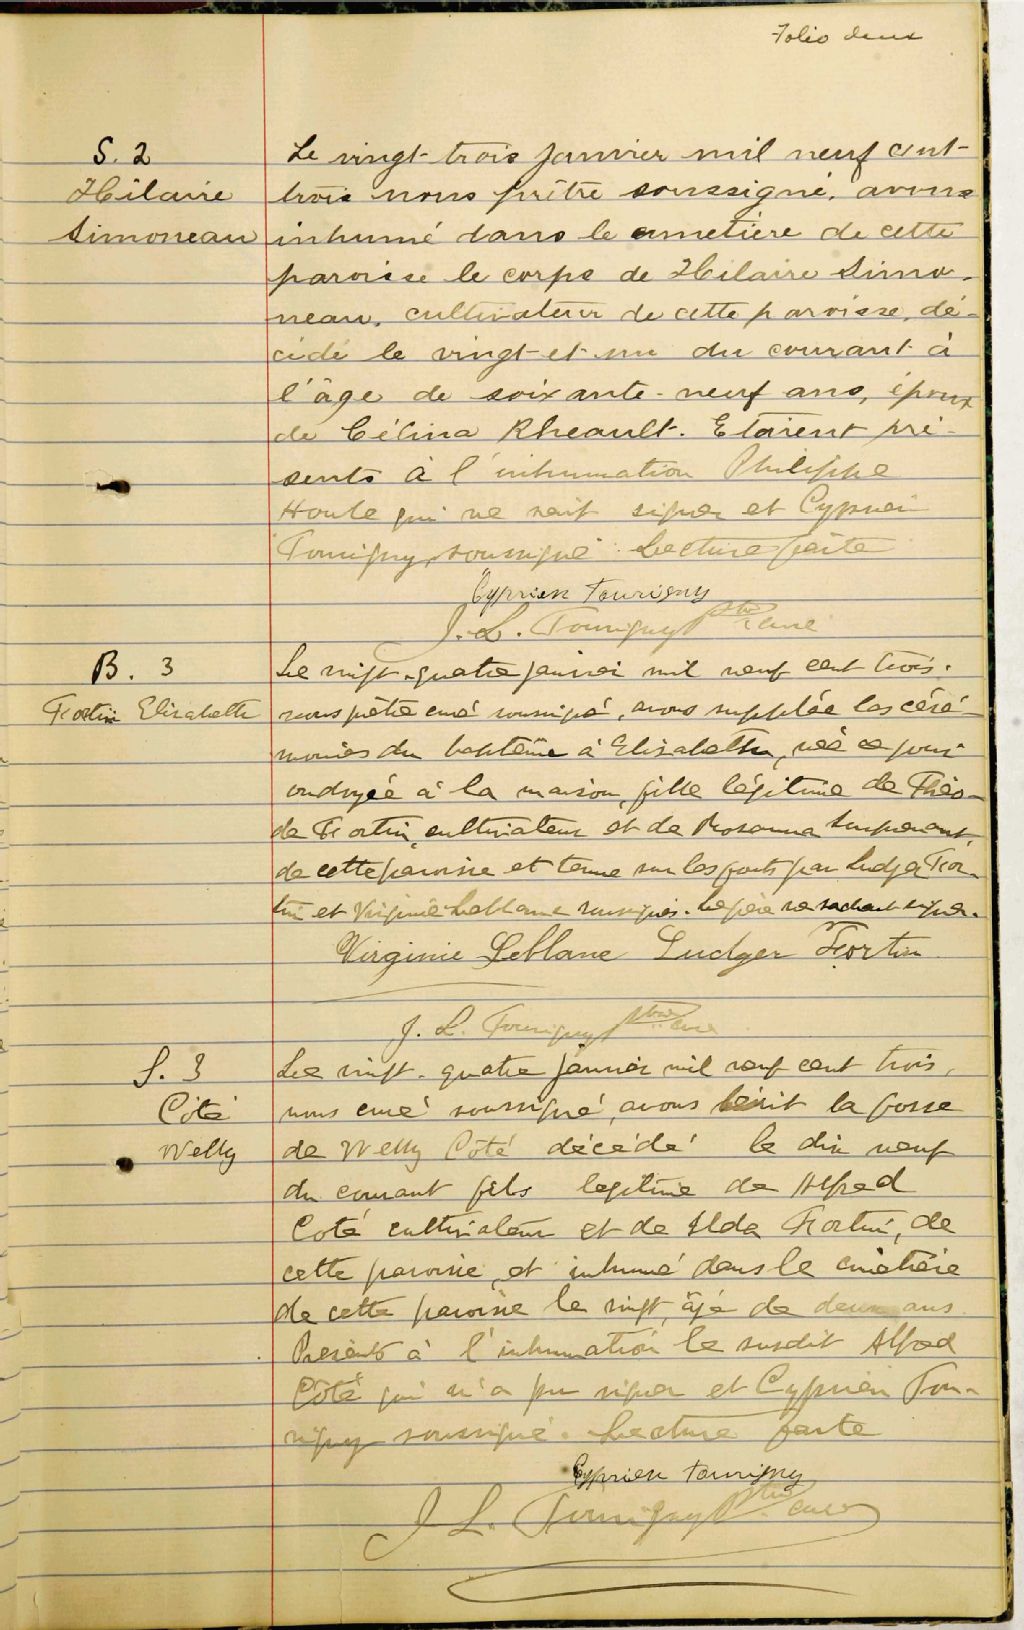 Folio deux
S. 2
Hilaire
Simoneau
Le vingt-trois janvier mil neuf cent-
trois nous prêtre soussigné, avons
inhumé dans le cimetière de cette
paroisse le corps de Hilaire Simo-
neau, cultivateur de cette paroisse, dé-
cédé le vingt-et-un du courant à
l'âge de soixante-neuf ans, époux
de Célina Rheault. Etaient pré-
sents à l'inhumation Philippe
Houle qui ne sait signer et Cyprien
Tourigny, soussigné. Lecture faite
Cyprien Tourigny
J. L. Tourigny Ptre curé
B. 3
Fortin Elisabeth
Le vingt-quatre janvier mil neuf cent trois.
nous prêtre curé soussigné, avons suppléé les céré-
monies du baptême à Elisabeth, née ce jour
ondoyée à la maison, fille légitime de Théo-
de Fortin, cultivateur et de Rosanna
de cette paroisse et tenue sur les fonts par Ludger For-
tin et Virginie Leblanc soussignés. Le père ne sachant signer.
Virginie Leblanc Ludger Fortin
J. L. Tourigny Ptre curé
S. 3
Côté
Welly
Le vingt-quatre janvier mil neuf cent trois,
nous curé soussigné, avons bénit la fosse
de Welly Côté décédé le dix neuf
du courant fils legitime de Alfred
Coté cultivateur et de Alda Fortin, de
cette paroisse, et inhumé dans le cimetière
de cette paroisse le vingt, âgé de deux ans
Présents à l'inhumation le susdit Alfred
Côté qui n'a pu signer et Cyprien Tou-
rigny soussigné. Lecture faite
Cyprien Tourigny
J L. Tourigny Ptre curé